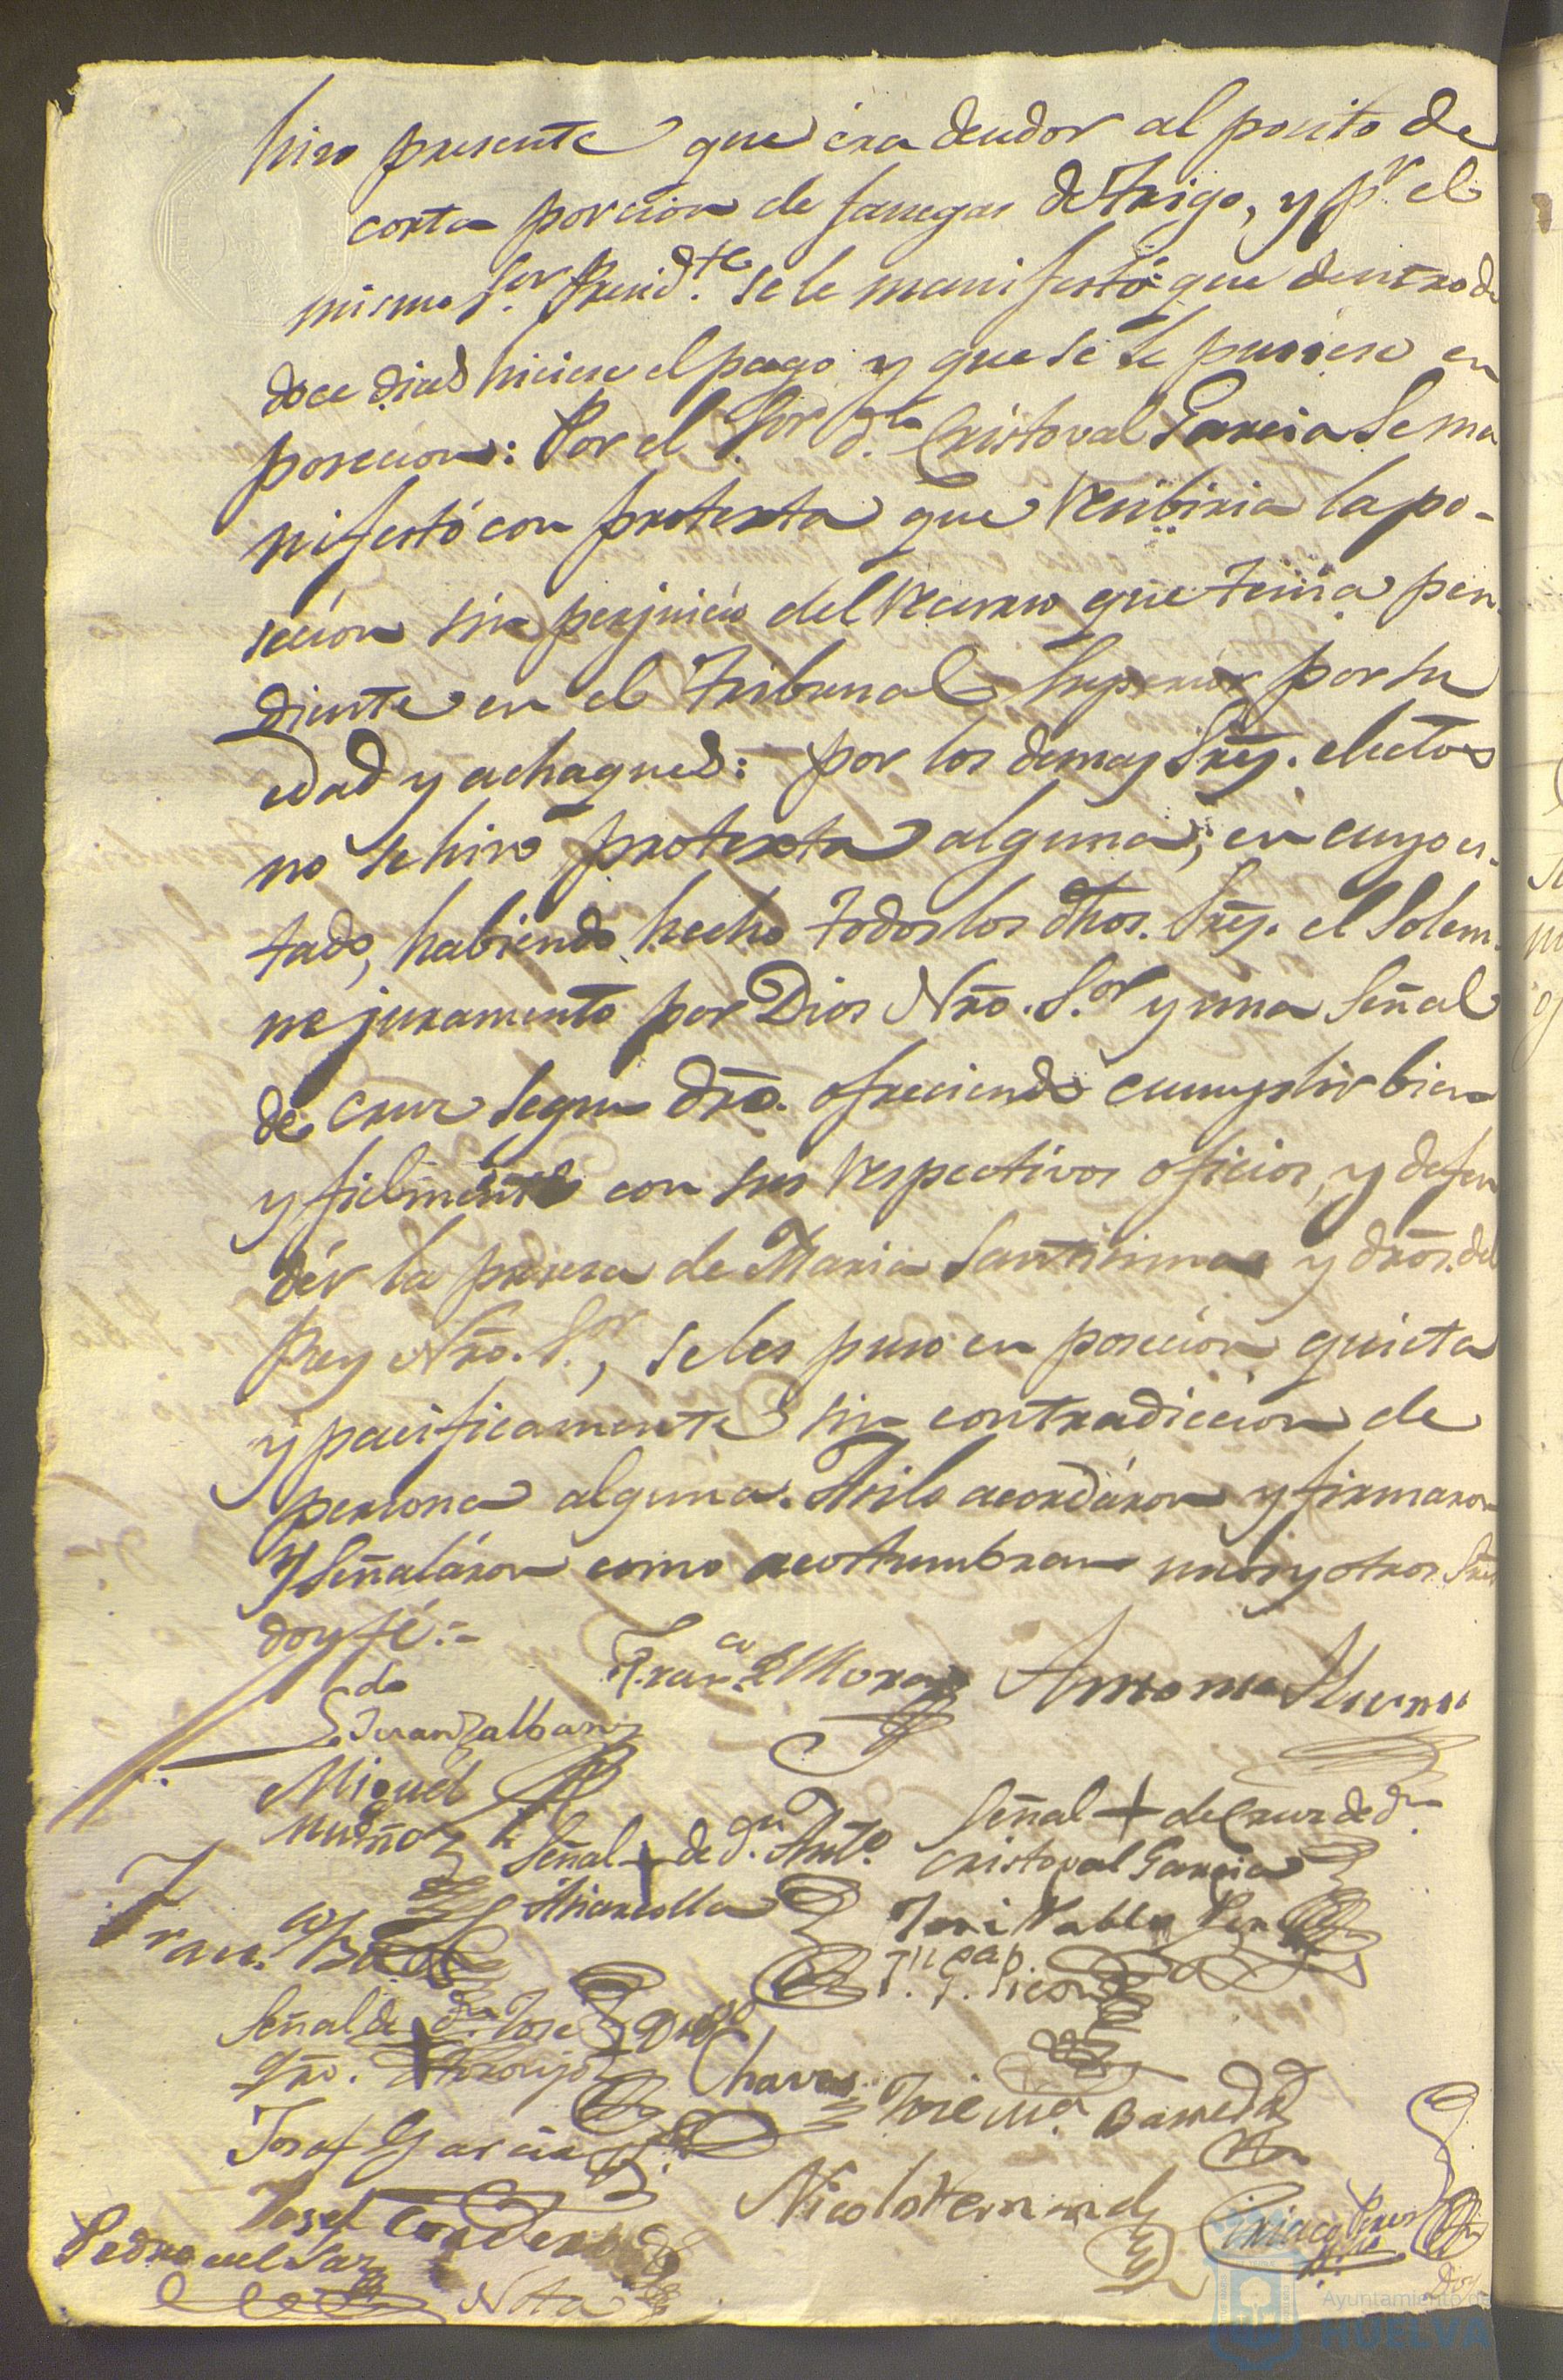 hizo presente que era deudor al posito de
corta porcion de fanegas de trigo, y pr. el
mismo Sor. Presidte. se le manifestó que dentro de
doce dias hiciese el pago y que se le pusiese en
posecion: Por el Sor. dn. Cristoval Garcia Se ma
nifestó con protexta que recibiria la po-
secion sin perjuicio del recurso que tenia pen
diente en el Tribunal Superior por su
edad y achaques: por los demas Sres. electos
no se hizo protexta alguna; en cuyo es-
tado, habiendo hecho todos los dhos. Sres. el Solem-
ne juramento por Dios Nro. S.or y una Señal
de cruz segun dro. ofreciendo cumplir bien
y fielmente con sus respectivos oficios, y defen
dér la pureza de Maria Santisima y dros. del
Rey Nro. S.or, se les puso en posecion quieta
y pacificamente sin contradiccion de
persona alguna. Asilo acordáron y firmaron
y Señaláron como acostumbran unos y otros Sres
doy fé:-
Fran.co de Mora Antonio
Ldo
Juan
Miguel
Muñoz
Señal + de dn. Anto.
Señal + de Cruz de dn.
Cristoval Garcia
José Pablo
Fran.co
Señal de dn. Jose
Diego
Chaves
Jose Ma.
Josef Garcia
Josef Cordero
Nicolas Hernandz
Pedro
Ciriaco Perez
Nota
Ayuntamiento de
HUELVA